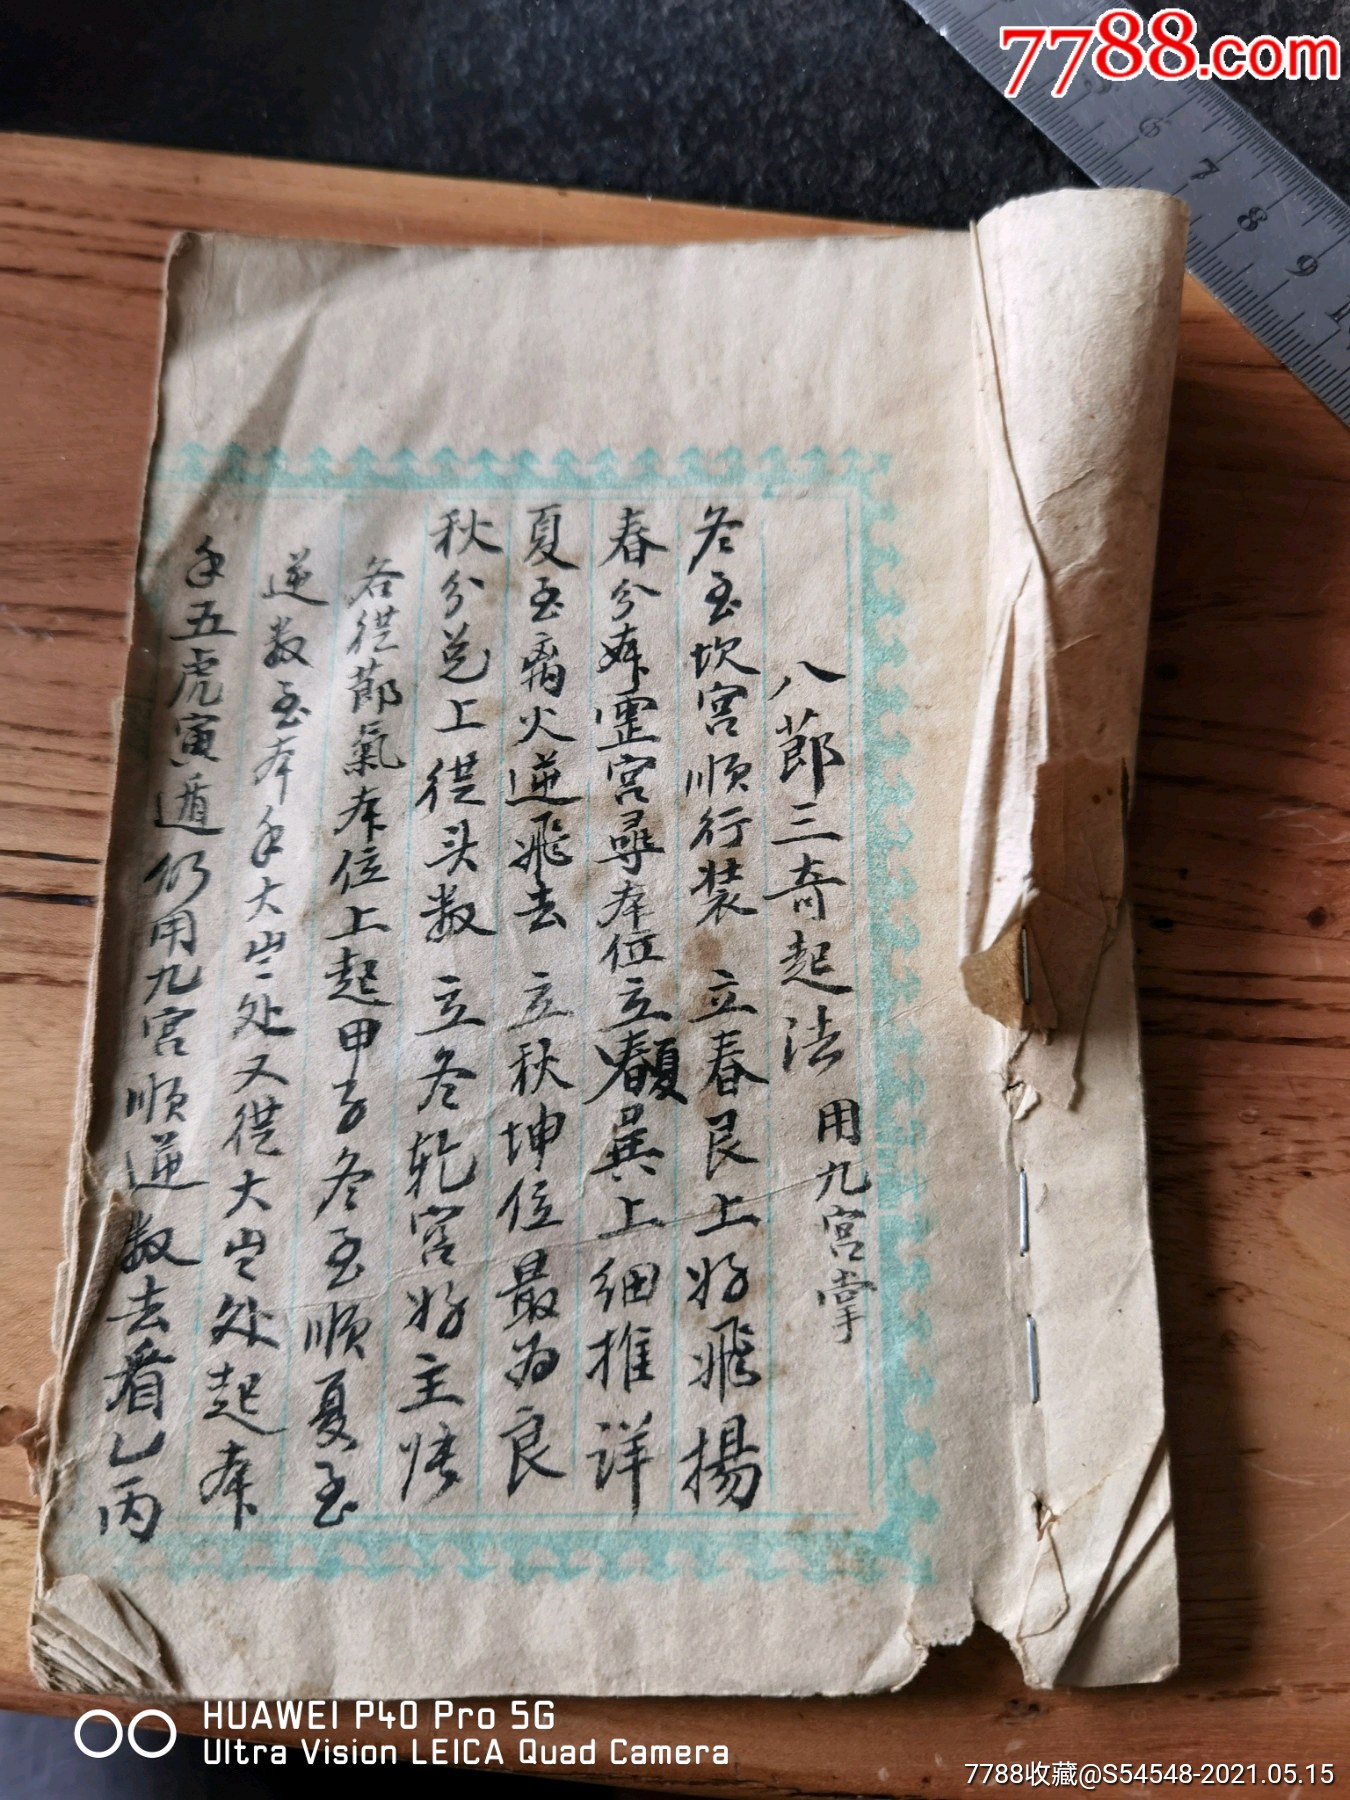 7788.com
6
7
8
9
八節三奇起法 用九宫掌
冬至坎宫順行装 立春艮上好飛揚
春分奔震宫尋本位立夏巽上细推詳
夏至离火逆飛去 立秋坤位最为良
秋分兑上從头数 立冬乾宫好主张
各從節氣本位上起甲子冬至順夏至
逆数至本年大岁处又從大岁处起本
年五虎寅遁仍用九宫順逆数去看乙丙
HUAWEI P40 Pro 5G
Ultra Vision LEICA Quad Camera
7788收藏@S54548-2021.05.15